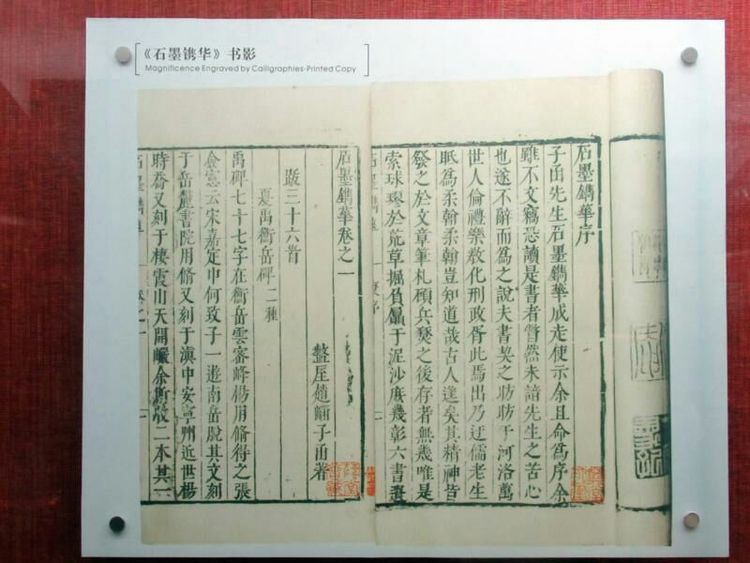 《石墨镌华》书影
Magnificence Engraved by Calligraphies-Printed Copy
石墨鐫華序
子函先生石墨鐫華成走使示余且命爲序余
雖不文竊恐讀是書者瞢然未諳先生之苦心
也遂不辭而爲之說夫書契之昉昉于河洛萬
世人倫禮樂敎化刑政胥此焉出乃迂儒老生
眡爲柔翰柔翰豈知道哉古人逹矣其精神皆
發之於文章筆札顧兵燹之後存者無幾唯是
索球璆於荒草掘負贔于泥沙庶幾彰六書
石墨鐫華卷之一
盩厔趙崡子函著
跋三十六首
夏禹衡岳碑二種
禹碑七十七字在衡岳雲密峰楊用脩得之張
僉憲云宋嘉定中何致子一遊南岳脫其文刻
于岳麓書院用脩又刻于滇中安寧州近世楊
時喬又刻于棲霞山天開巖余衡岳二本其一